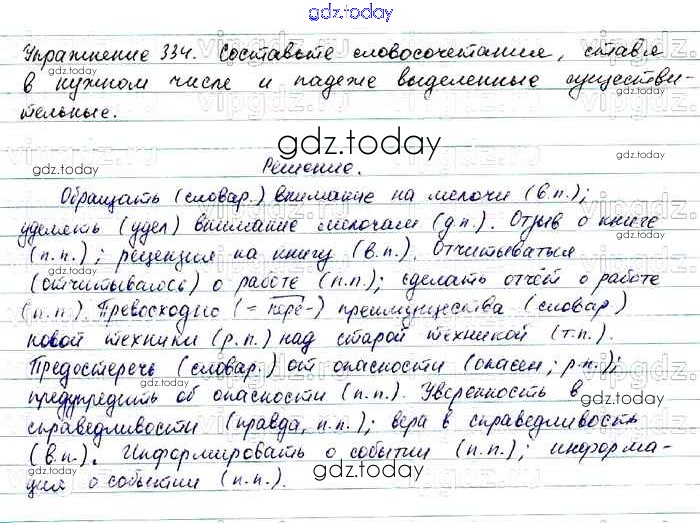 gdz.today
Упражнение 334. Составьте словосочетания, ставя
в нужном числе и падеже выделенные существи-
тельные.
gdz.today
Решение.
Обращать (словар.) внимание на мелочи (в.п.);
уделять (удел) внимание мелочам (д.п.). Отзыв о книге
(п.п.); рецензия на книгу (в.п.). Отчитываться
(отчитывалось) о работе (п.п.); сделать отчёт о работе
(п.п). Превосходно (= пре-) преимущества (словар)
новой техники (р.п.) над старой техникой (т.п.).
Предостеречь (словар.) от опасности (опасен; р.п.);
предупредить об опасности (п.п.). Уверенность в
справедливости (правда, п.п.); вера в справедливость
(в.п.). Информировать о событии (п.п.); информа-
ция о событии (п.п.).
gdz.today